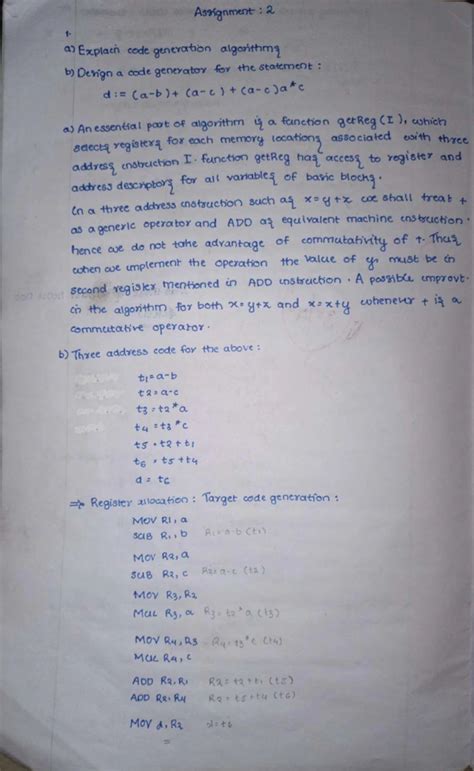 Assignment : 2
1.
a) Explain code generation algorithms
b) Design a code generator for the statement :
d := (a-b) + (a-c) + (a-c)a*c
a) An essential part of algorithm is a function getReg (I), which
selects registers for each memory locations associated with three
address instruction I. function getReg has access to register and
address descriptors for all variables of basic blocks.
In a three address instruction such as x=y+x we shall treat +
as a generic operator and ADD as equivalent machine instruction.
hence we do not take advantage of commutativity of +. Thus
when we implement the operation the value of y, must be in
second register mentioned in ADD instruction. A possible improvt.
in the algorithm for both x=y+x and x=x+y whenever + is a
commutative operator.
b) Three address code for the above :
t1=a-b
t2=a-c
t3=t2*a
t4=t3*c
t5=t2+t1
t6=t5+t4
d = t6
⇒ Register allocation : Target code generation :
MOV R1, a
SUB R1, b R1=a-b (t1)
MOV R2, a
SUB R2, c R2=a-c (t2)
MOV R3, R2
MUL R3, a R3=t2*a (t3)
MOV R4, R3 R4=t3*c (t4)
MUL R4, c
ADD R2, R1 R2=t2+t1 (t5)
ADD R2, R4 R2=t5+t4 (t6)
MOV d, R2 d=t6